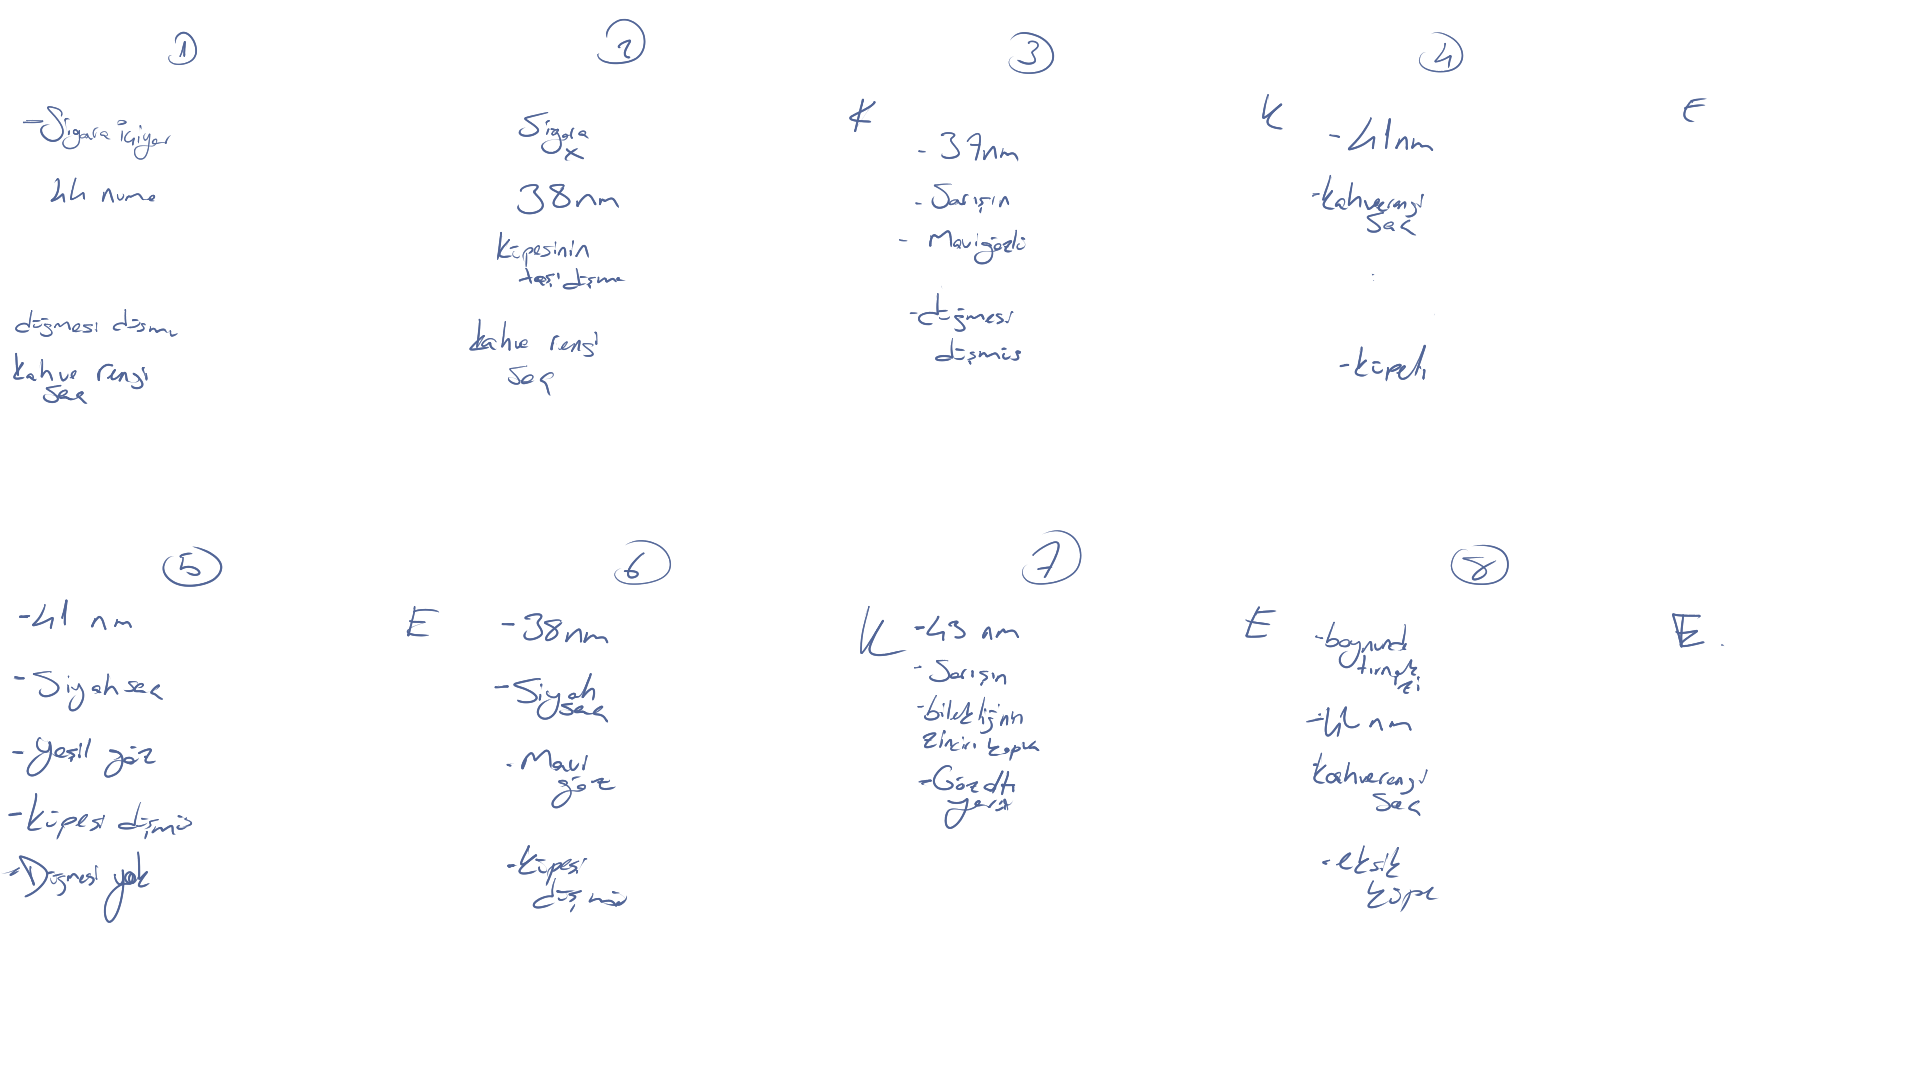 1
- Sigara içiyor
44 nume
düğmesi düşmü
kahve rengi
saç
2
Sigara
x
38 nm
Küpesinin
taşı düşme
kahve rengi
saç
3
K
- 37 nm
- Sarışın
- Mavi gözlü
- düğmesi
düşmüş
4
K
- 41 nm
- kahverengi
saç
- küpeli
E
5
- 41 nm
- Siyah saç
- Yeşil göz
- Küpesi düşmüş
- Düğmesi yok
6
E
- 38 nm
- Siyah
saç
- Mavi
göz
- küpesi
düşmüş
7
K
- 43 nm
- Sarışın
- bilekliğinin
zinciri kopuk
- Göz altı
8
E
- boynunda
tırnak
izi
nm
kahverengi
saç
- eksik
küpe
E.